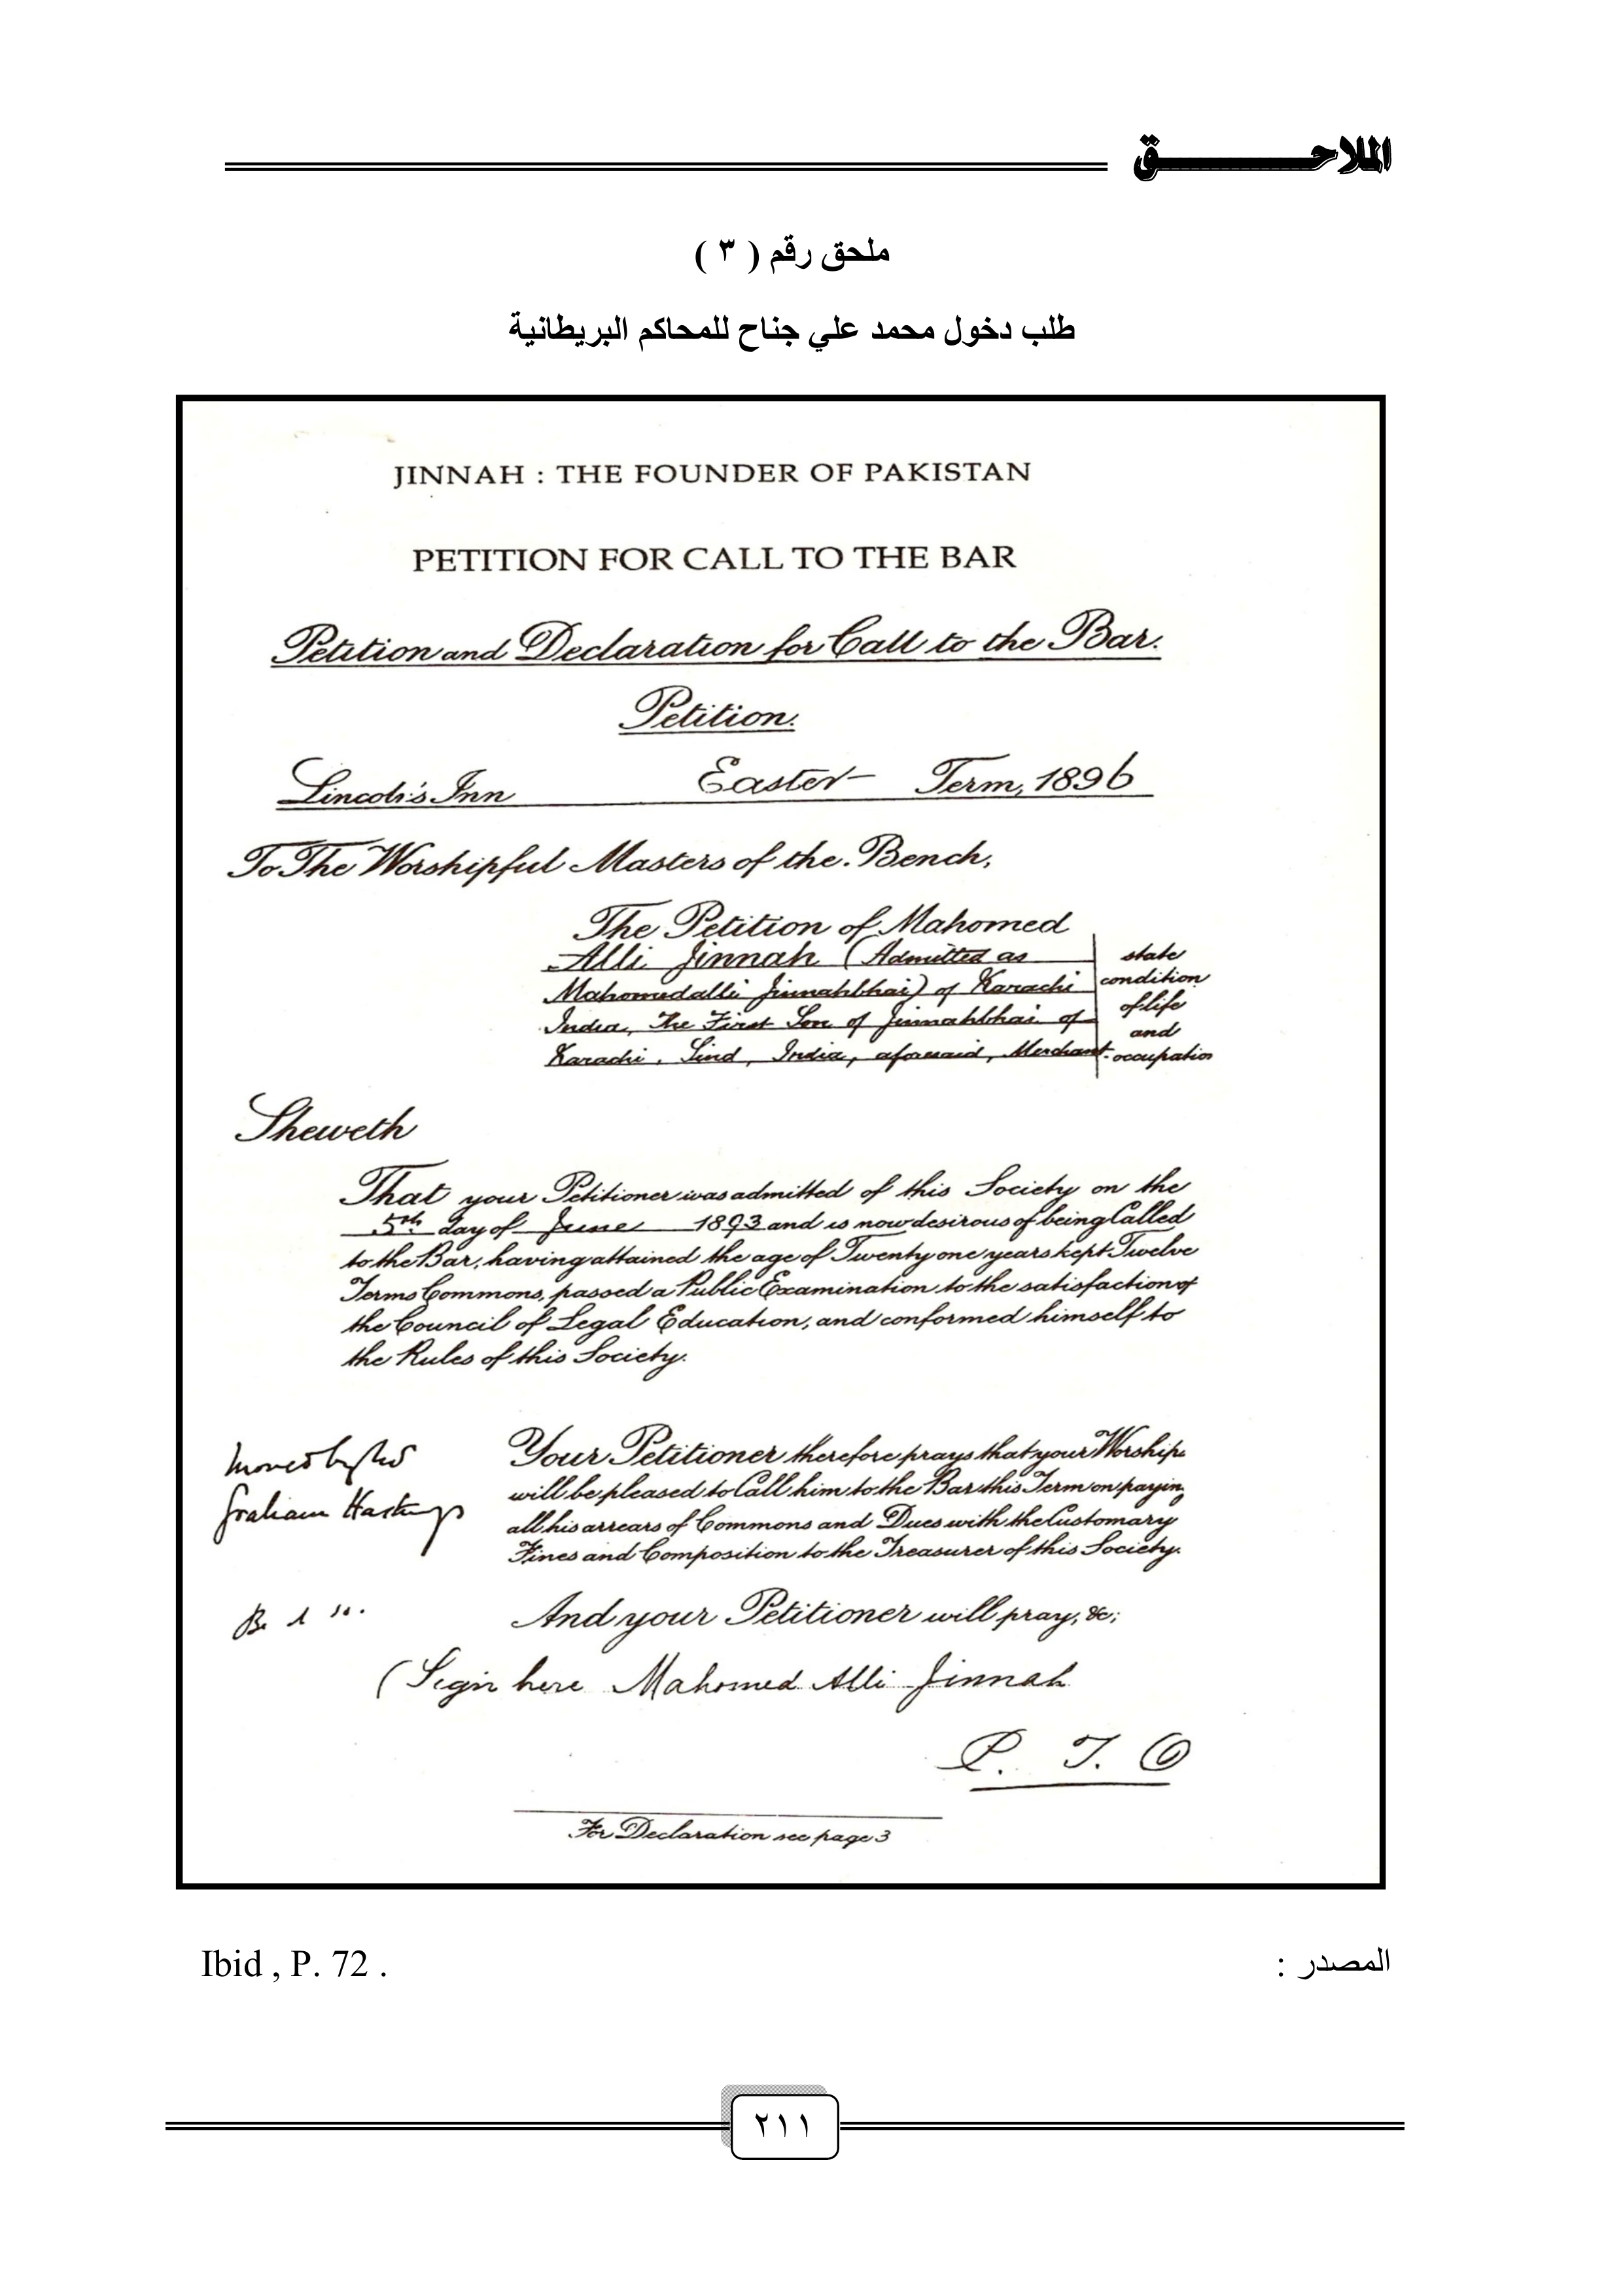 الملاحـــــــــــــق
ملحق رقم ( ٣ )
طلب دخول محمد علي جناح للمحاكم البريطانية
JINNAH : THE FOUNDER OF PAKISTAN
PETITION FOR CALL TO THE BAR
Petition and Declaration for Call to the Bar.
Petition.
Lincoln's Inn Easter Term, 1896
To The Worshipful Masters of the Bench,
The Petition of Mahomed
Alli Jinnah (Admitted as
Mahomedalli Jinnahbhai) of Karachi
India, The First Son of Jinnahbhai of
Karachi, Sind, India, aforesaid, Merchant.
state
condition
of life
and
occupation
Sheweth
That your Petitioner was admitted of this Society on the
5th day of June 1893 and is now desirous of being Called
to the Bar, having attained the age of Twenty one years kept Twelve
Terms Commons, passed a Public Examination to the satisfaction of
the Council of Legal Education, and conformed himself to
the Rules of this Society.
Moved by
Graham Hastings
Your Petitioner therefore prays that your Worship
will be pleased to Call him to the Bar this Term on payin
all his arrears of Commons and Dues with the Customary
Fines and Composition to the Treasurer of this Society.
And your Petitioner will pray, &c;
(Sign here Mahomed Alli Jinnah
P. T. O
For Declaration see page 3
المصدر : Ibid , P. 72 .
٢١١